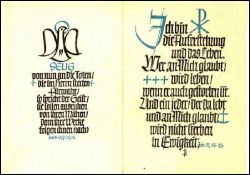 SELIG
von nun an die Toten
die im Herrn sterben
Fürwahr,
so spricht der Geist:
sie sollen ausruhen
von ihren Mühen
denn ihre Werke
folgen ihnen nach
Ich bin
die Auferstehung
und das Leben.
Wer an Mich glaubt
wird leben
wenn er auch gestorben ist.
Und ein jeder, der da lebt
und an Mich glaubt
wird nicht sterben
in Ewigkeit.